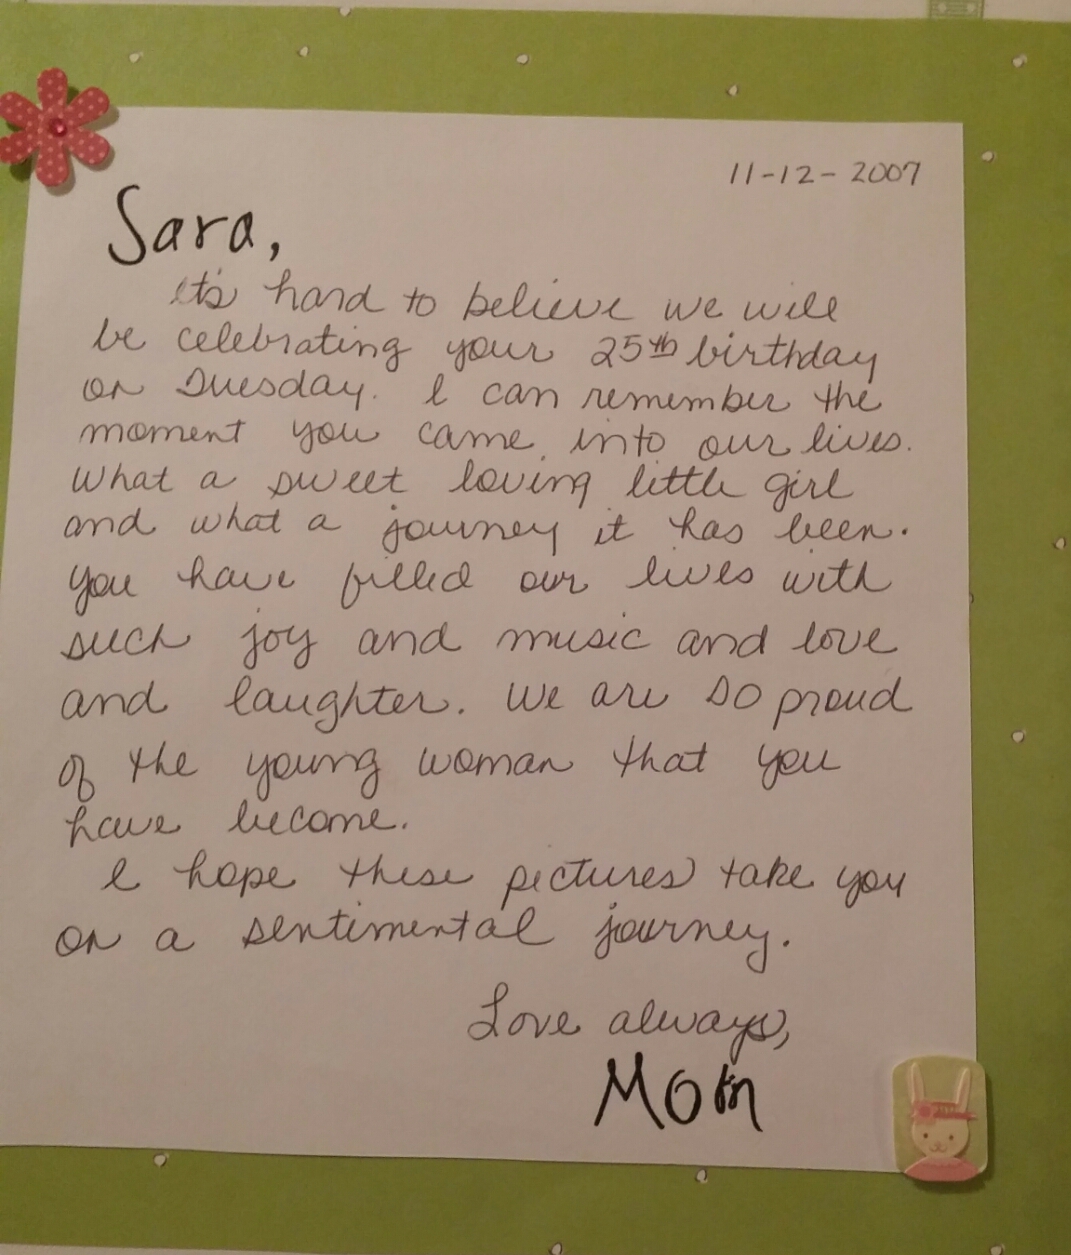 11-12-2007
Sara,
It's hard to believe we will
be celebrating your 25th birthday
on Tuesday. I can remember the
moment you came into our lives.
What a sweet loving little girl
and what a journey it has been.
You have filled our lives with
such joy and music and love
and laughter. We are so proud
of the young woman that you
have become.
I hope these pictures take you
on a sentimental journey.
Love always,
Mom